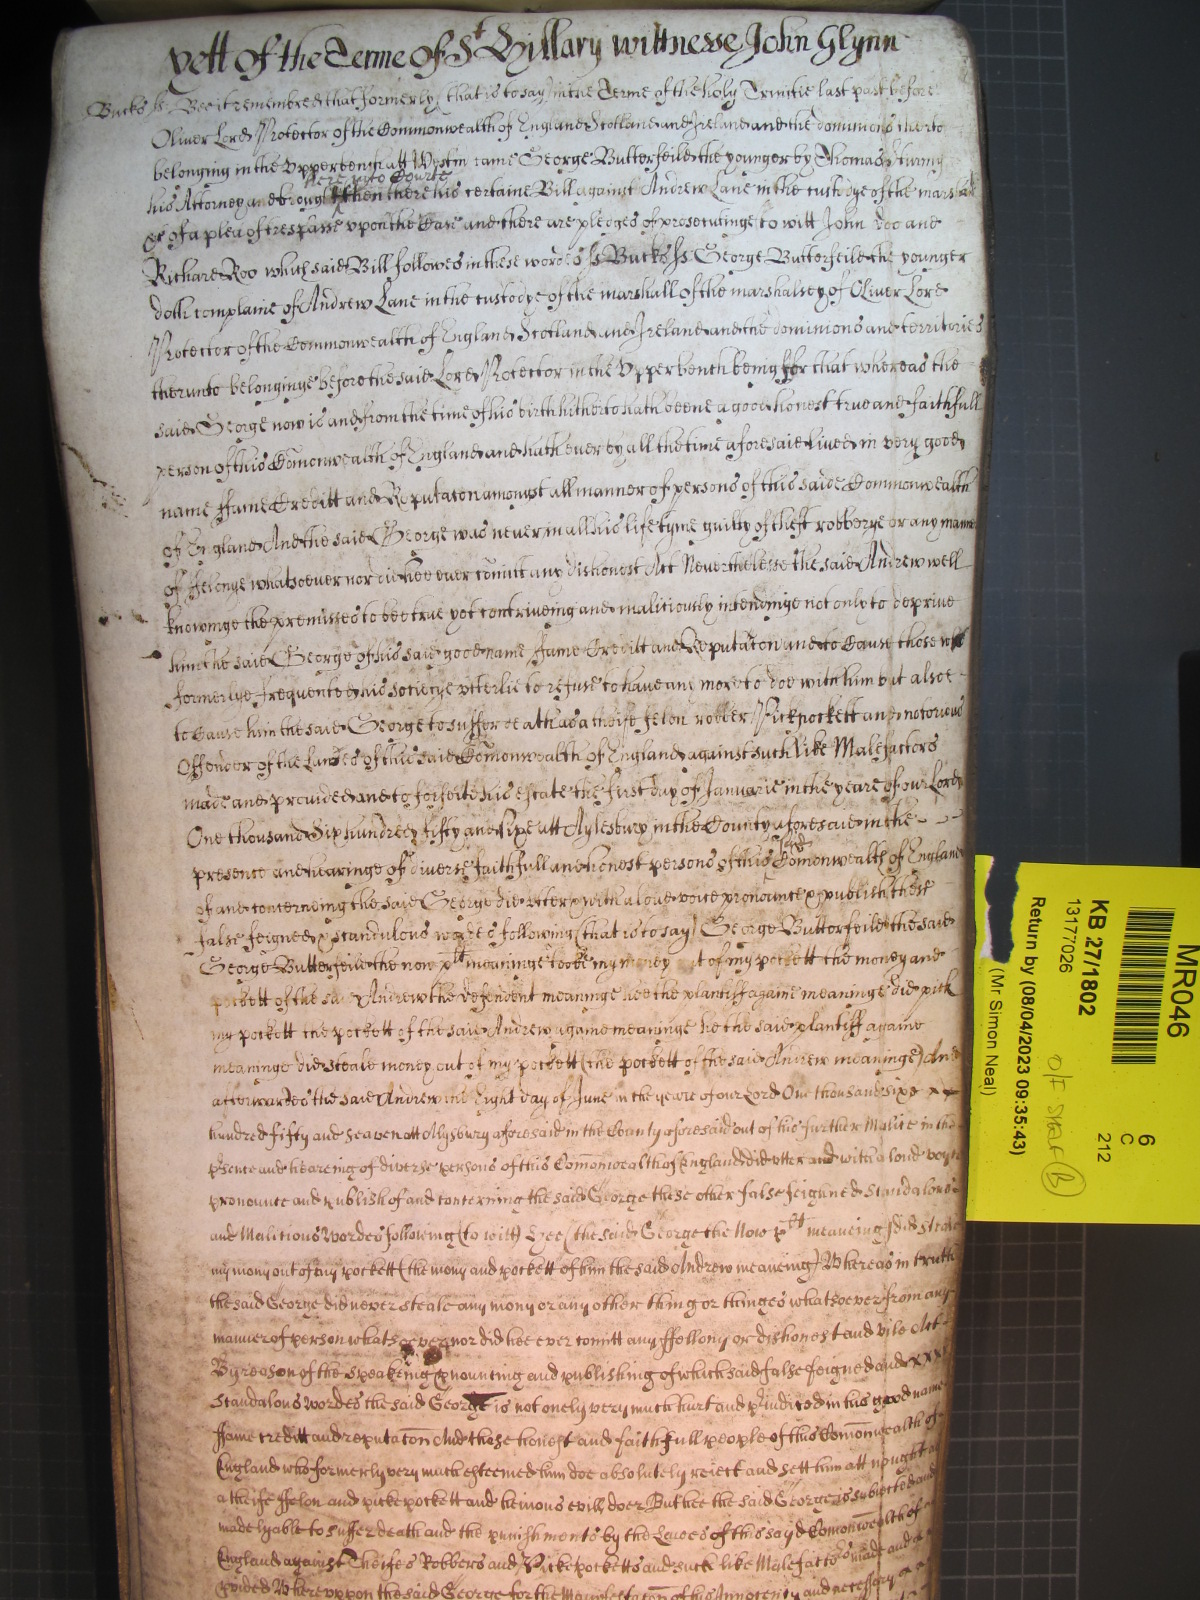 yett of the Terme of St Hillary wittnesse John Glynn
Bucks ss Bee it remembred that formerly (that is to say) in the Terme of the holy Trinitie last past before
Oliver Lord Protector of the Commonwealth of England Scotland and Ireland and the dominions therto
belonging in the Upper bench att Westm came George Butterfeild the younger by Thomas
here into Courte
his Attorney and brought then there his certaine Bill against Andrew Lane in the custodye of the marshall
&c of a plea of trespasse upon the Case and there are pledges of prosecutinge to witt John Doo and
Richard Roo which said Bill followes in these wordes ss Bucks ss George Butterfeild the younger
doth complaine of Andrew Lane in the custodye of the marshall of the marshalsey of Oliver Lord
Protector of the Commonwealth of England Scotland and Ireland and the dominions and territories
therunto belonginge before the said Lord Protector in the Upper bench being for that whereas the
said George now is and from the time of his birth hitherto hath beene a good honest true and faithfull
person of this Comonwealth of England and hath ever by all the time aforesaid lived in very good
name ffame Creditt and Reputacon amongst all manner of persons of this saide Commonwealth
of England And the said George was never in all his life tyme guilty of theft robberye or any manner
of ffelonye whatsoever nor did hee ever comitt any dishonest Act Neverthelesse the said Andrew well
knowinge the premisses to bee true yet contriveing and maliciously intendinge not only to deprive
him the said George of his said good name ffame Creditt and Reputacon and to Cause those who
formerlye frequented his societye utterlie to refuse to have any more to doe with him but alsoe
to Cause him the said George to suffer death as a theife felon robber Pickpockett and notorious
Offender of the Lawes of this said Comonwealth of England against such like Malefactors
made and provided and to forfeite his estate the first day of Januarie in the yeare of our Lord
One thousand Six hundred fifty and sixe att Aylesbury in the County aforesaid in the
said
presence and hearinge of diverse faithfull and honest persons of this Comonwealth of England
of and concerneing the said George did utter & with a loud voice pronounce & publish these
false feigned & scandulous wordes following (that is to say) George Butterfeild the said
George Butterfeild the now plt meaninge tooke my money out of my pockett the money and
pockett of the said Andrew the defendent meaninge hee the plantiff againe meaninge did pick
my pockett the pockett of the said Andrew againe meaninge he the said plantiff againe
meaninge did steale money out of my pockett (the pockett of the said Andrew meaninge) And
afterwardes the said Andrew the Eight day of June in the yeare of our Lord One thousand sixe
hundred fifty and seaven att Alysbury aforesaid in the County aforesaid out of his further Malice in the
psence and heareing of diverse persons of this Comonwealth of England did utter and with a loud voyce
pronounce and publish of and concerning the said George these other false feighned Scandalous
and Malitious Wordes following (to witt) Hee (the said George the Now plt meaneing) did steale
my mony out of my pockett (the mony and pockett of him the said Andrew meaneing) Whereas in truth
the said George did never steale any mony or any other thing or thinges whatsoever from any
manner of person whatsoever nor did hee ever comitt any ffellony or dishonest and vile Act
By reason of the speakeing pnouncing and publishing of which said false feigned and xxxx
Scandalous Wordes the said George is not onely very much hurt and pjudiced in his good name
ffame creditt and reputacon And those honest and faithfull people of this Comonwealth of
England who formerly very much esteemed him doe absolutely reject and sett him att nought as
a theife ffelon and pickepockett and heinous evill doer But hee the said George is subjected and
made lyable to suffer death and the punishments by the Lawes of this sayd Comonwealth of
England against Theifes Robbers and Pickepocketts and such like Malefactors made and
pvided Whereuppon the said George for the Manifestacon of his Innocency and necessary
MR046
KB 27/1802
13177026
Return by (08/04/2023 09:35:43)
(Mr Simon Neal)
6
C
212
O/F Shelf B